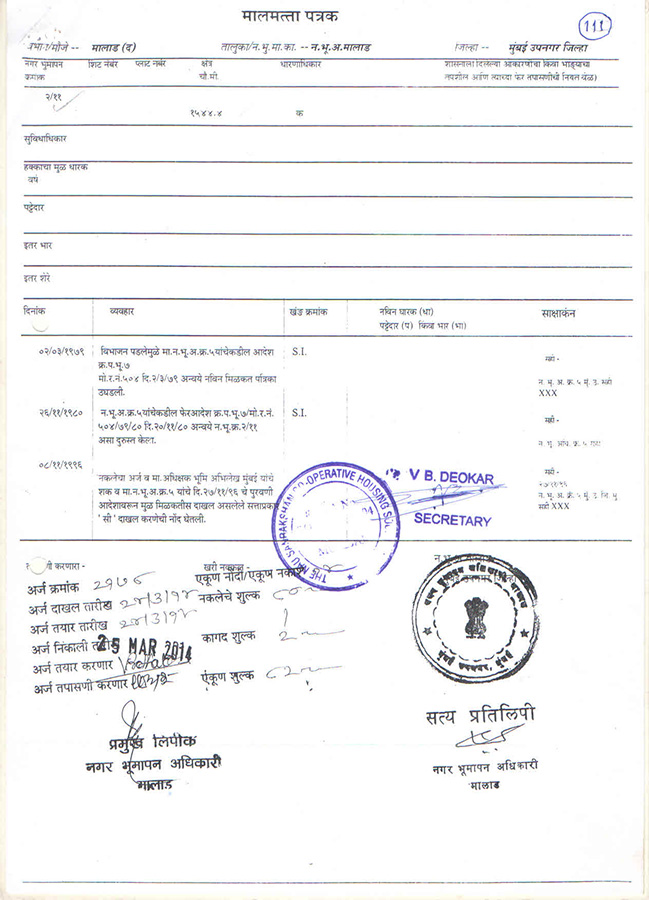 मालमत्ता पत्रक
111
मालाड (द) तालुका/न.भु.मा.का. -- न.भू.अ.मालाड जिल्हा -- मुंबई उपनगर जिल्हा
नगर भुमापन शिट नंबर प्लाट नंबर क्षेत्र धारणाधिकार शासनाला दिलेल्या आकारणीचा किंवा भाड्याचा
क्रमांक चौ.मी. तपशील आणि त्याच्या फेर तपासणीची नियत वेळ)
२/११
१५४४.४ क
सुविधाधिकार
हक्काचा मुळ धारक
वर्ष
पट्टेदार
इतर भार
इतर शेरे
दिनांक व्यवहार खंड क्रमांक नविन धारक (धा) साक्षांकन
पट्टेदार (प) किंवा भार (भा)
०२/०३/१९७९ विभाजन पडलेमुळे मा.न.भू.अ.क्र.५यांचेकडील आदेश S.I. सही -
क्र.प.भू.७
मो.र.नं.५०४ दि.२/३/७९ अन्वये नविन मिळकत पत्रिका न. भु. अ. क्र ५ मुं. उ.
उघडली. XXX
२६/११/१९८० न.भू.अ.क्र.५यांचेकडील फेरआदेश क्र.प.भू.७/मो.र.नं. S.I. सही -
५०४/७९/८० दि.२०/११/८० अन्वये न.भू.क्र.२/११
असा दुरुस्त केला. न. भु. अधि. क्र. ५
०८/११/१९९६ सही -
नकलेचा अर्ज व मा.अधिक्षक भूमि अभिलेख मुंबई यांचे २७/११/९६
शक व मा.न.भू.अ.क्र.५ यांचे दि.२७/११/९६ चे पुरवणी न. भु. अ. क्र. ५ मुं.
आदेशावरून मुळ मिळकतीस दाखल असलेले सत्ताप्रकार XXX
' सी ' दाखल करणेची नोंद घेतली.
V B. DEOKAR
SECRETARY
CO-OPERATIVE HOUSING
करणारा - खरी नक्कल -
अर्ज क्रमांक २१७८ एकूण नोंदी/एकूण नकला
अर्ज दाखल तारीख नकलेचे शुल्क
अर्ज तयार तारीख
अर्ज निकाली तारीख 25 MAR 2014 कागद शुल्क
अर्ज तयार करणार
अर्ज तपासणी करणार एकूण शुल्क
सत्य प्रतिलिपी
प्रमुख लिपीक
नगर भूमापन अधिकारी
मालाड
नगर भूमापन अधिकारी
मालाड